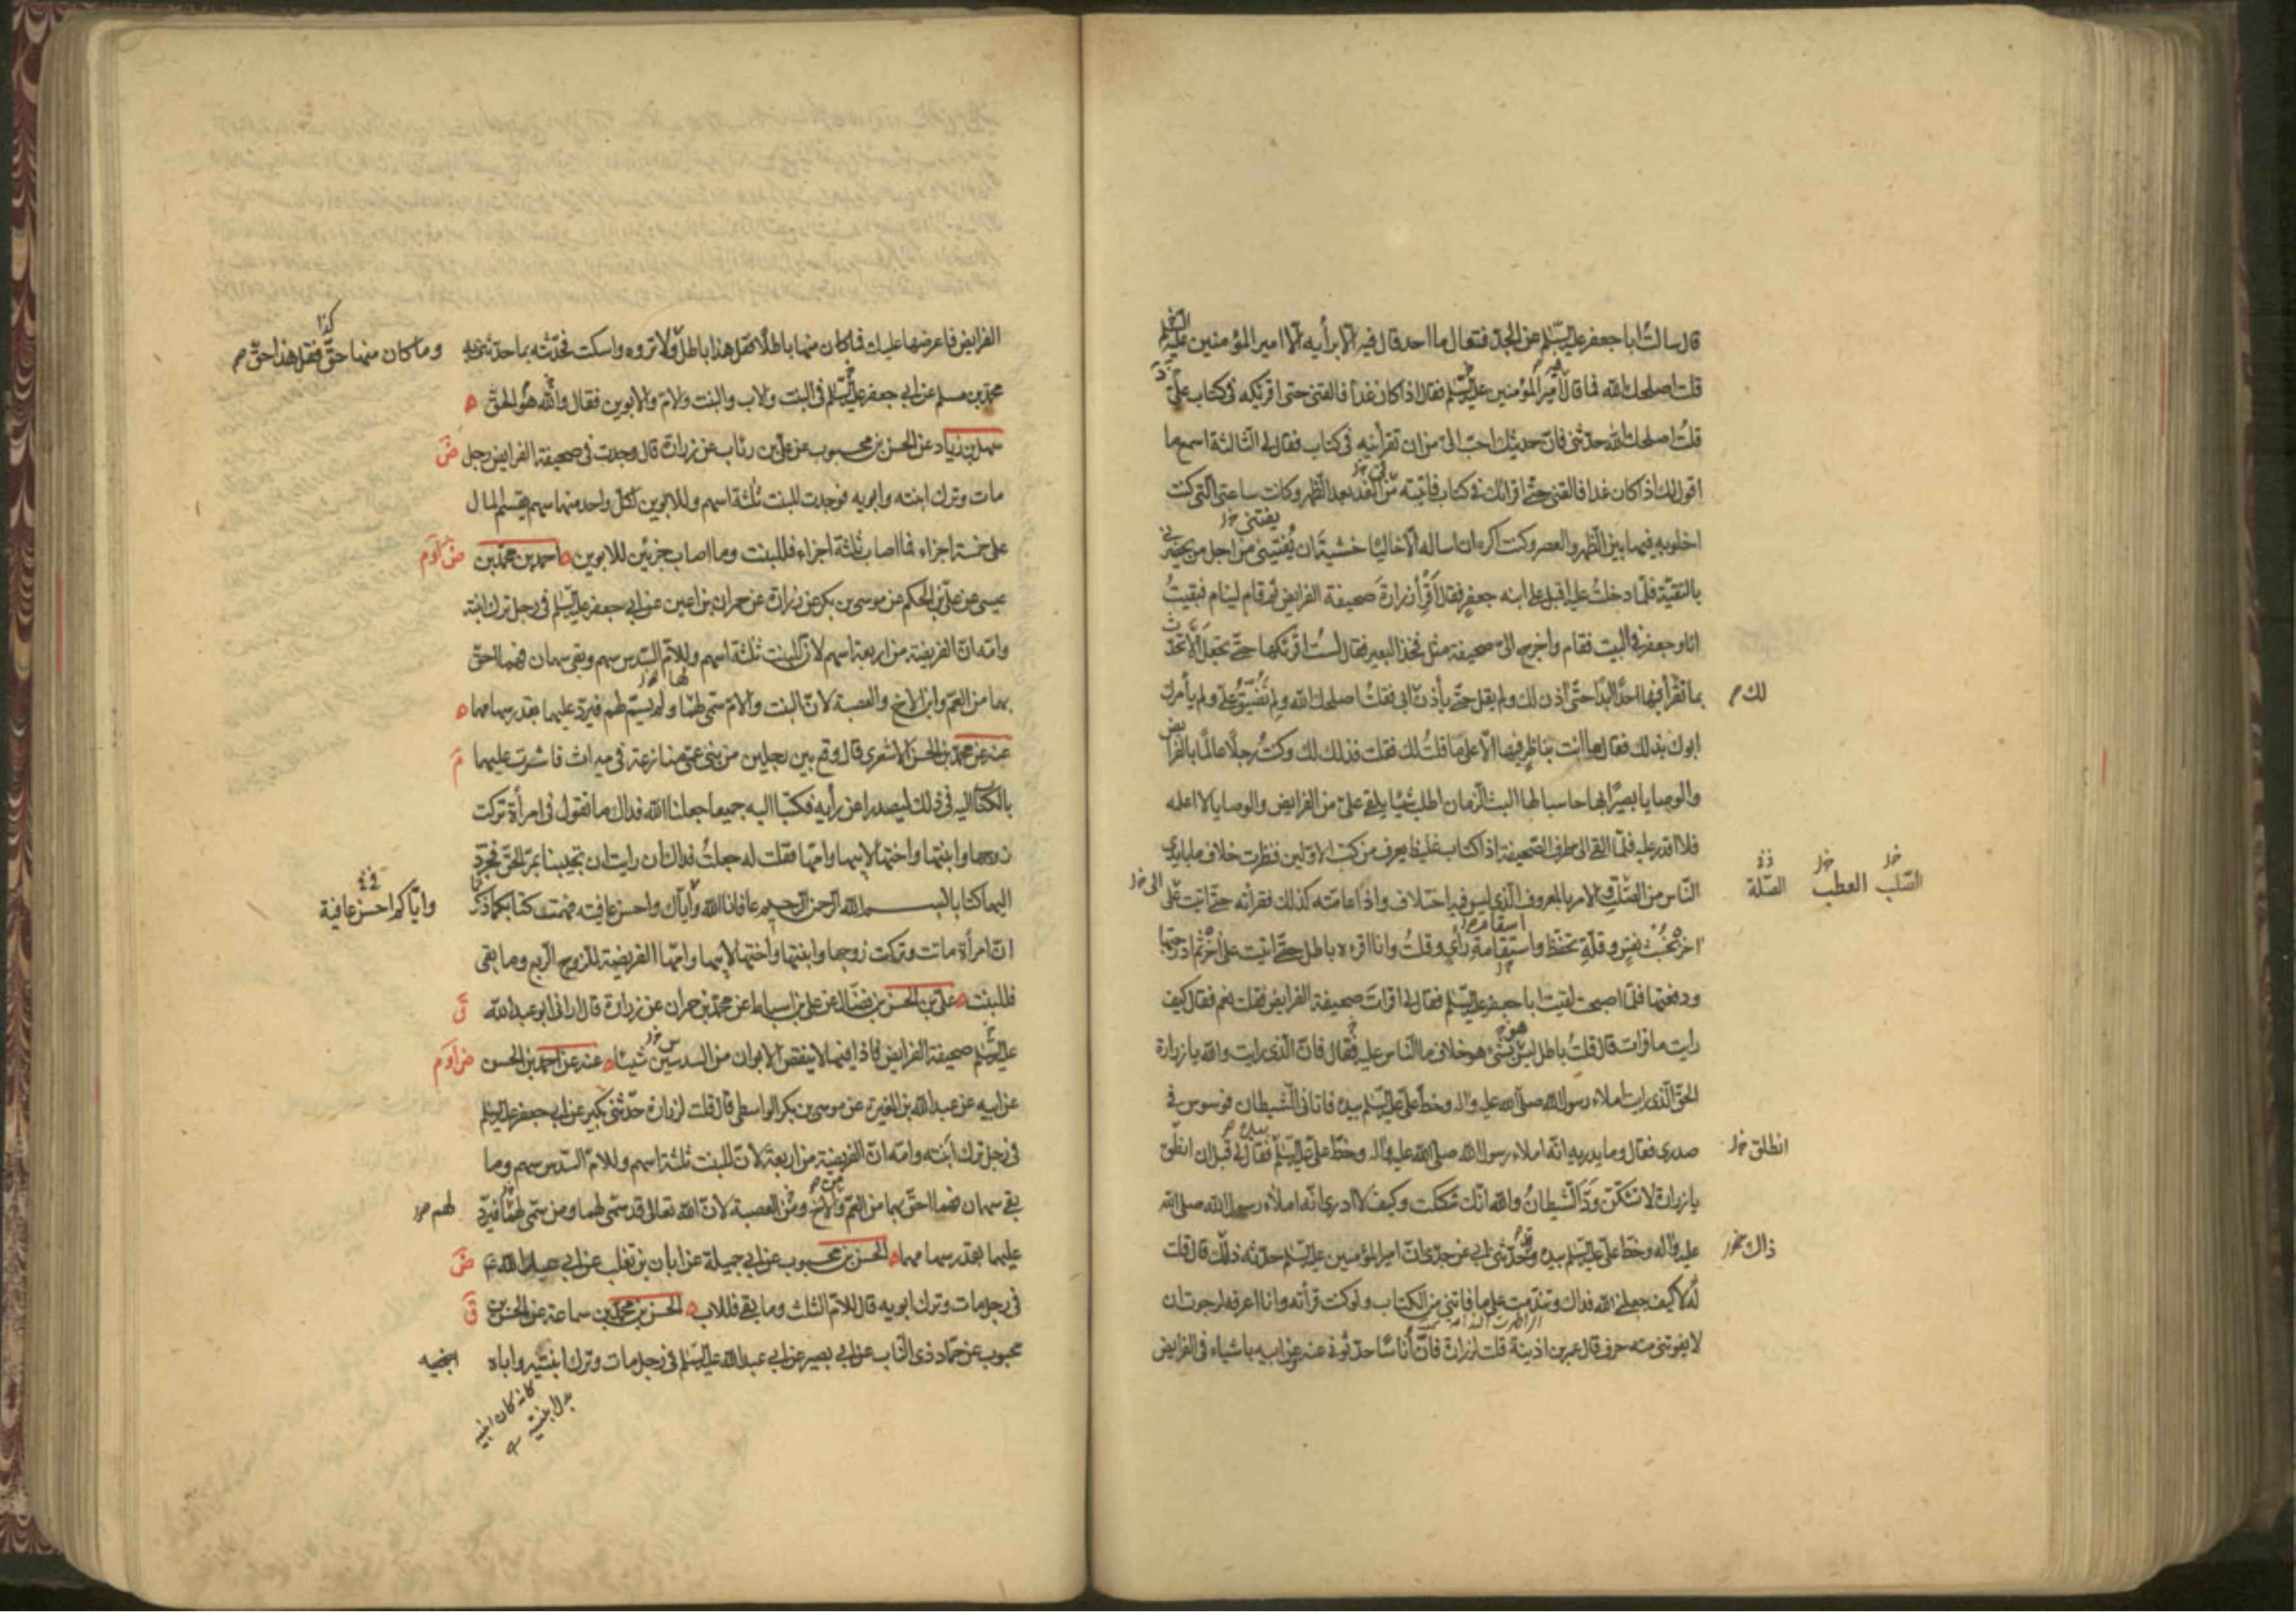 قال سالتُ ابا جعفر عليه السّلم عن الجدّ فقال ما احد قال فيه الّا برأيه الّا امير المؤمنين عليه السّلم
قلت اصلحك الله فما قال فيه امير المؤمنين عليه السّلم فقال اذا كان غداً فالقنى حتى اقرئكه فى كتاب علىّ
قلتُ اصلحك الله حدّثنى فانّ حديثك احبّ الىّ من ان تقرأنيه فى كتاب فقال لى الثالثة اسمع ما
اقول لك اذا كان غدا فالقنى حتّى اقرائك فى كتاب فاتيته من الغد بعد الظهر وكانت ساعتى الّتى كنت
اخلو به فيها بين الظهر والعصر وكنت اكره ان اساله الّا خاليًا خشية ان يُفتينى من اجل من يحضر
يفتنى خ ل
بالتقيّة فلمّا دخلتُ عليه اقبل على ابنه جعفرٍ فقال اقرأ زرارةَ صحيفة الفرايض ثم قام لينام فبقيتُ
انا وجعفر فى البيت فقام واخرج الىّ صحيفة مثل فخذ البعير فقال لستُ اقرئكها حتّى تجعل لى الله الّا تحدّث
بما تقرأ فيها احدًا ابدًا حتّى آذن لك ولم يقل حتّى يأذن ابى فقلت اصلحك الله ولم تُضيّق علىّ ولم يأمرك
لك م
ابوك بذلك فقال ما انت بناظر فيها الّا على ما قلتُ لك فقلت فذلك لك وكنتُ رجلًا عالمًا بالفرايض
والوصايا بصيرًا بها حاسبا لها البث الزمان اطلب شيئا يلقى علىّ من الفرايض والوصايا لا اعلمه
فلا اقدر عليه فلمّا القى الى طرف الصّحيفة اذا كتاب غليظ يعرف من كتب الاوّلين فنظرت خلاف ما بايدى
النّاس من الصّلة والامر بالمعروف الّذى ليس فيه اختلاف واذا عامّته كذلك فقرأته حتّى اتيت على
الصّلب خ ل العطب خ ل الصّلة
الى خ ل
اخره بخُبث نفسٍ وقلّة تحفّظ واستقامة رأى وقلتُ وانا اقرءه باطل حتّى اتيت على اخره ثم ادرجتها
ودفعتها فلمّا اصبحت لقيت ابا جعفر عليه السّلم فقال لى اقرات صحيفة الفرايض فقلت نعم فقال كيف
رايت ما قرات قال قلتُ باطل ليس بشىء هو خلاف ما النّاس عليه فقال فانّ الّذى رايت والله يا زرارة
الحقّ الّذى رايت املاء رسول الله صلّى الله عليه واله وخطّ علىّ عليه السّلم بيده فاتانى الشّيطان فوسوس فى
صدرى فقال وما يدريه انّه املاء رسول الله صلى الله عليه واله وخطّ علىّ عليه السّلم فقال لى قبل ان انطق
انطلق خ ل
يا زرارة لا تشكّنّ ودّ الشّيطانُ والله انّك شككت وكيف لا ادرى انّه املاء رسول الله صلى الله
عليه واله وخطّ علىّ عليه السّلم بيده وقد حدّثنى ابى عن جدّى انّ امير المؤمنين عليه السّلم حدّثه ذلك قال قلت
ذاك خ ل
له لا كيف جعلنى الله فداك وتندّمت على ما فاتنى من الكتاب ولو كنت قرأته وانا اعرفه لرجوت ان
لا يفوتنى منه حرف قال عمر بن اذينة قلت لزرارة فانّ أناسًا حدّثونى عنه عن ابيه باشياء فى الفرايض
الفرايض فاعرضها عليك فما كان منها باطلًا فقل هذا باطل ولا تروه واسكت فحدّثته بما حدّثنى به
وما كان منها حقّ فقل هذا حقّ م
كذا
محمّد بن مسلم عن ابى جعفر عليه السّلم فى البنت والاب والبنت والامّ والابوين فقال والله هو الحقّ
سهل بن زياد عن الحسن بن محبوب عن علىّ بن رئاب عن زرارة قال وجدت فى صحيفة الفرايض رجل
مات وترك ابنته وابويه فوجدت للبنت ثلثة اسهم وللابوين لكلّ واحد منهما سهم يقسم المال
على خمسة اجزاء فما اصاب ثلثة اجزاء فللبنت وما اصاب جزئين للابوين احمد بن محمّد بن
عيسى عن علىّ بن الحكم عن موسى بن بكر عن زرارة عن حمران بن اعين عن ابى جعفر عليه السّلم فى رجل ترك ابنته
وامّه انّ الفريضة من اربعة اسهم لانّ للبنت ثلثة اسهم وللامّ السّدس سهم وبقى سهمان فهما احقّ
بهما من العمّ وابن الاخ والعصبة لانّ البنت والامّ سمّى لهما ولم يسمّ لهم فيردّ عليهما بقدر سهامهما
عنه عن محمّد بن الحسن الاشعرى قال وقع بين رجلين من بنى عمّى منازعة فى ميراث فاشرت عليهما
بالكتاب اليه فى ذلك ليصدرا عن رأيه فكتبا اليه جميعا جعلنا الله فداك ما تقول فى امرأة تركت
زوجها وابنتها واختها لابيها وامّها وقلت له جعلتُ فداك ان رايت ان تجيبنا بمرّ الحقّ فخرج
اليهما كتابا بسم الله الرّحمن الرّحيم عافانا الله وايّاك واحسن عافيته فهمت كتابكما ذكرتما
وايّاكم احسن عافية
انّ امرأة ماتت وتركت زوجها وابنتها واختها لابيها وامّها الفريضة للزوج الرّبع وما بقى
فللبنت علىّ بن الحسن بن فضّال عن على بن اسباط عن محمّد بن حمران عن زرارة قال ارانى ابو عبد الله
عليه السّلم صحيفة الفرايض فاذا فيها لا ينقص الابوان من السدسين شيئا عنه عن احمد بن الحسن
عن ابيه عن عبد الله بن المغيرة عن موسى بن بكر الواسطى قال قلت لزرارة حدّثنى بكير عن ابى جعفر عليه السّلم
فى رجل ترك ابنته وامّه انّ الفريضة من اربعة لانّ للبنت ثلثة اسهم وللامّ السّدس سهم وما
بقى سهمان فهما احقّ بهما من العمّ والاخ ومن العصبة لانّ الله تعالى قد سمّى لهما ومن سمّى لهما فيردّ
لهم خ ل
عليهما بقدر سهامهما الحسن بن محبوب عن ابى جميلة عن ابان بن تغلب عن ابى عبد الله ع
فى رجل مات وترك ابويه قال للامّ الثلث وما بقى فللاب الحسن بن محمّد بن سماعة عن الحسن بن
محبوب عن حمّاد ذى النّاب عن ابى بصير عن ابى عبد الله عليه السّلم فى رجل مات وترك ابنتيه واباه
كانه كان ابنيه
بدل ابنتيه